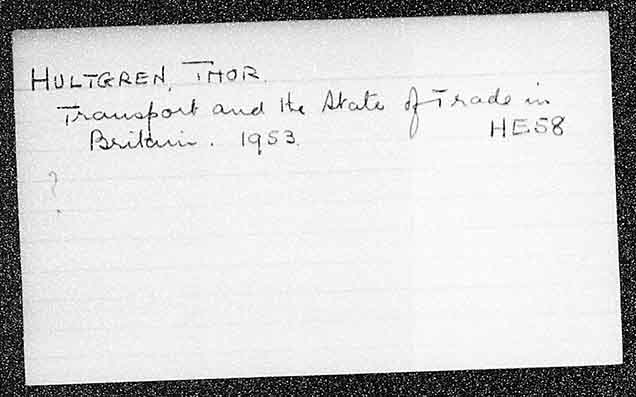 HULTGREN, THOR.
Transport and the State of Trade in
Britain. 1953. HE58
?